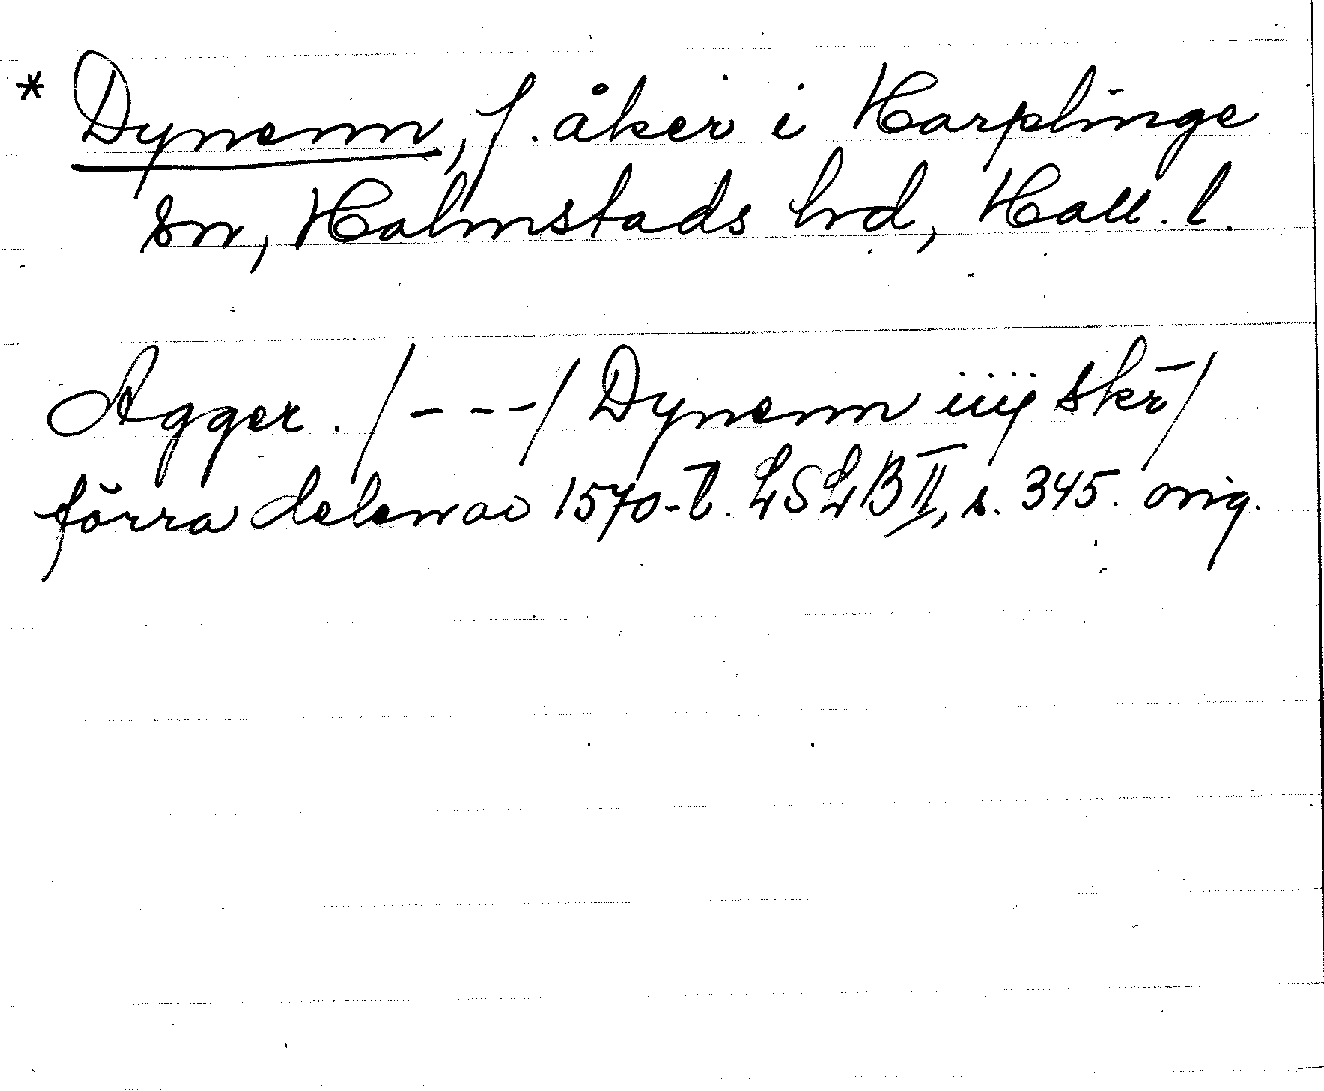 * Dynenn, f. åker i Harplinge
sn, Halmstads hrd, Hall. l.
Agger. /---/ Dynenn iiij skr̄/
förra delen av 1570-t. LSLB II, s. 345. orig.